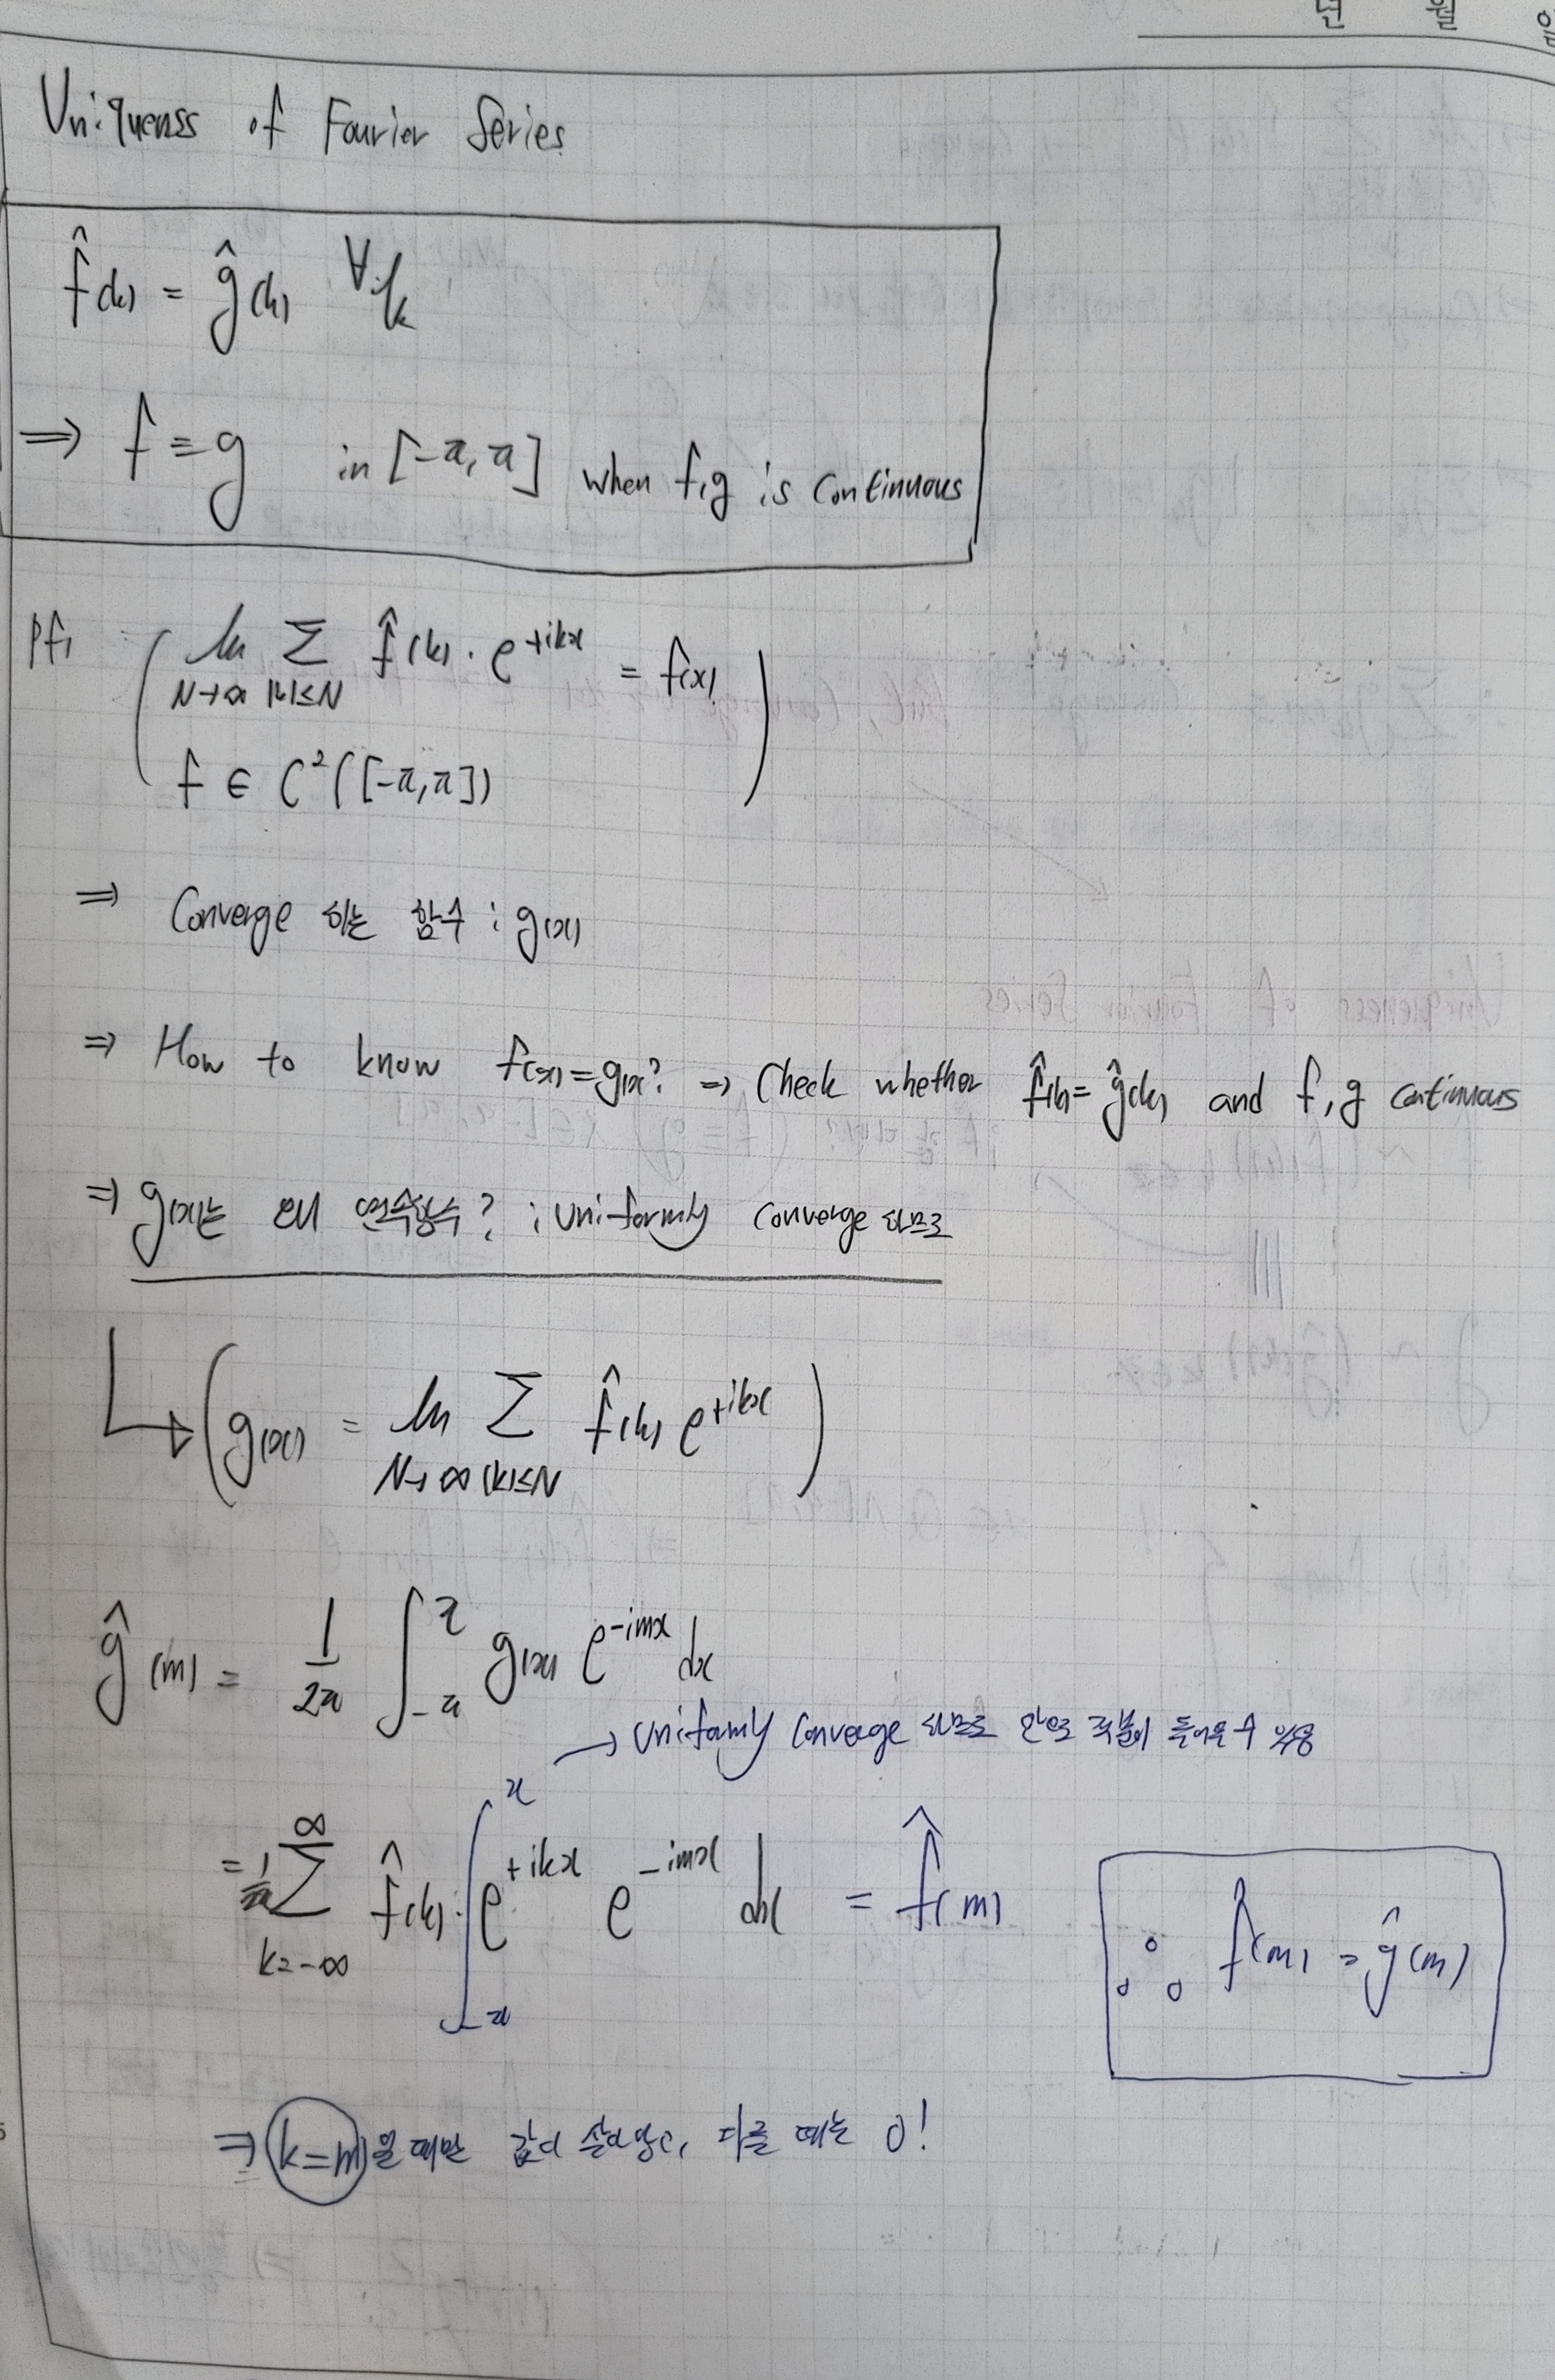 년 월 일
Uniquenss of Fourier Series
f̂(k) = ĝ(k) ∀k
⇒ f ≡ g in [-π, π] when f, g is continuous
pf) ( lim_{N→∞} Σ_{|k|≤N} f̂(k) · e^{+ikx} = f(x)
f ∈ C²([-π, π]) )
⇒ Converge 하는 함수 : g(x)
⇒ How to know f(x) = g(x)? ⇒ Check whether f̂(k) = ĝ(k) and f, g continuous
⇒ g(x)는 왜 연속함수? : Uniformly converge 하므로
↳ ( g(x) = lim_{N→∞} Σ_{|k|≤N} f̂(k) e^{+ikx} )
ĝ(m) = 1/2π ∫_{-π}^{π} g(x) e^{-imx} dx
→ Uniformly Converge 하므로 안으로 적분이 들어올 수 있음
= 1/2π Σ_{k=-∞}^{∞} f̂(k) · ∫_{-π}^{π} e^{+ikx} e^{-imx} dx = f̂(m)
∴ f̂(m) = ĝ(m)
⇒ k=m 일 때만 값이 살아있고, 다를 때는 0!